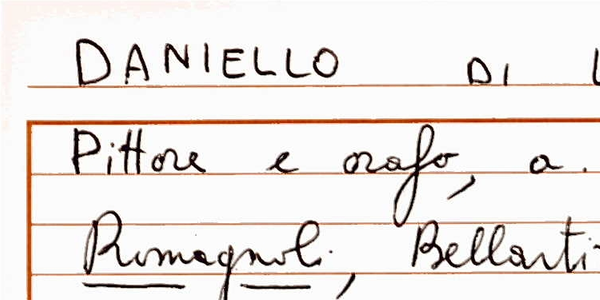 DANIELLO DI L
Pittore e orafo, a.
Romagnoli, Bellarti-